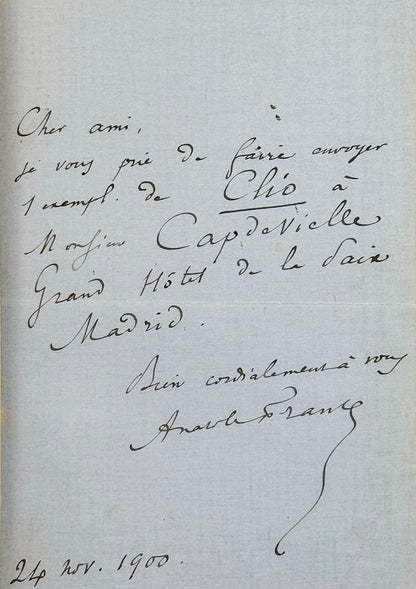 Cher ami,
je vous prie de faire envoyer
1 exempl. de Clio à
Monsieur Capdevielle
Grand Hôtel de la Paix
Madrid.
Bien cordialement à vous
Anatole France
24 nov. 1900.